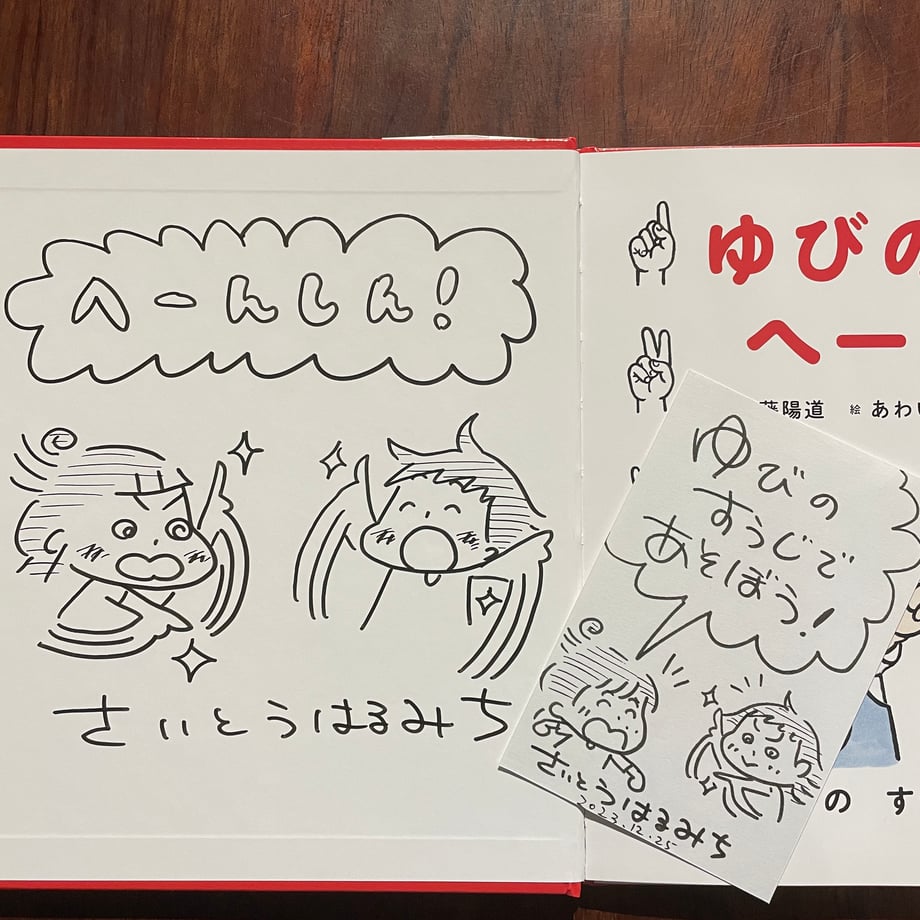 へーんしん！
さいとうはるみち
ゆびの
へー
陽道 絵 あわい
ゆびの
すうじで
あそぼう！
さいとうはるみち
2023.12.25
のす